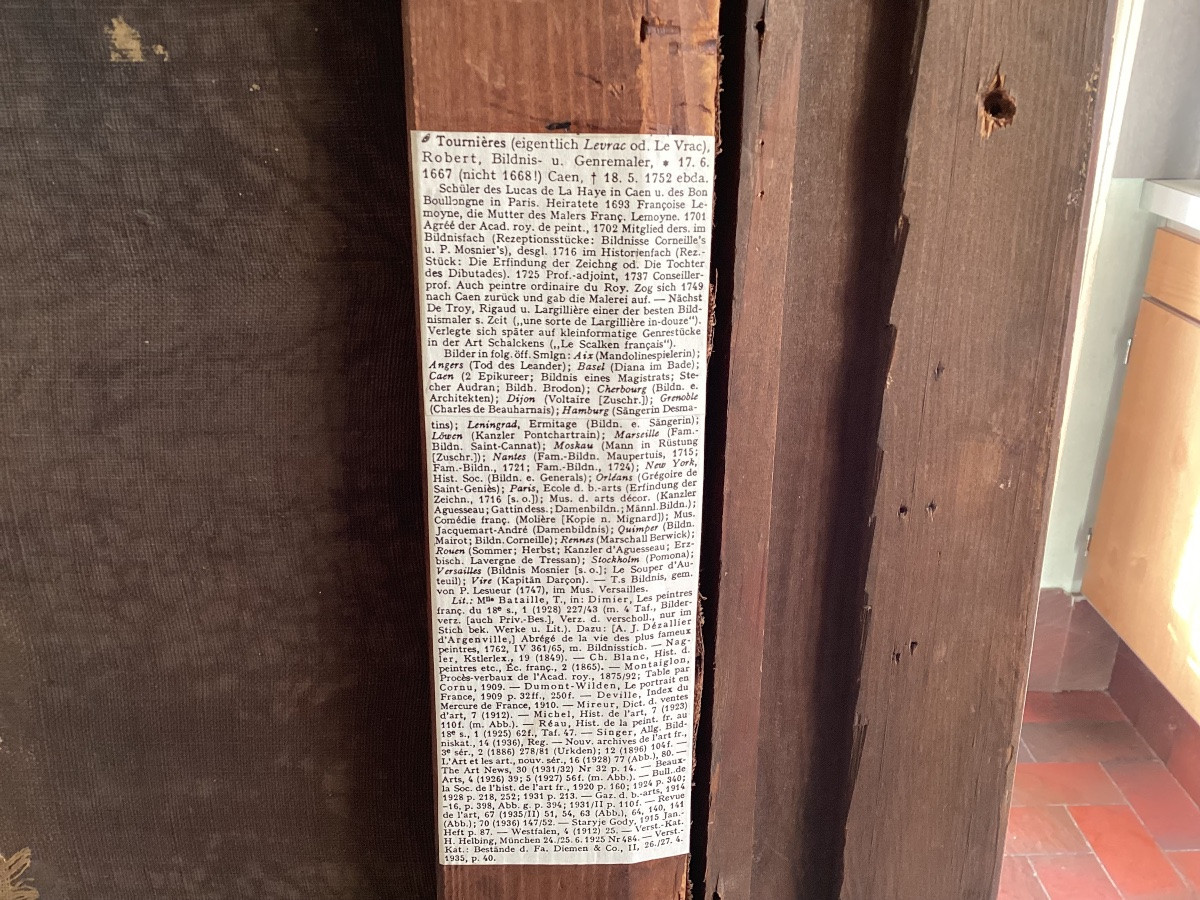 Tournières (eigentlich Levrac od. Le Vrac),
Robert, Bildnis- u. Genremaler, * 17. 6.
1667 (nicht 1668!) Caen, † 18. 5. 1752 ebda.
Schüler des Lucas de La Haye in Caen u. des Bon
Boullongne in Paris. Heiratete 1693 Françoise Le-
moyne, die Mutter des Malers Franç. Lemoyne. 1701
Agréé der Acad. roy. de peint., 1702 Mitglied ders. im
Bildnisfach (Rezeptionsstücke: Bildnisse Corneille's
u. P. Mosnier's), desgl. 1716 im Historienfach (Rez.-
Stück: Die Erfindung der Zeichng od. Die Tochter
des Dibutades). 1725 Prof.-adjoint, 1737 Conseiller-
prof. Auch peintre ordinaire du Roy. Zog sich 1749
nach Caen zurück und gab die Malerei auf. — Nächst
De Troy, Rigaud u. Largillière einer der besten Bild-
nismaler s. Zeit („une sorte de Largillière in-douze“).
Verlegte sich später auf kleinformatige Genrestücke
in der Art Schalckens („Le Scalken français“).
Bilder in folg. öff. Smlgn: Aix (Mandolinespielerin);
Angers (Tod des Leander); Basel (Diana im Bade);
Caen (2 Epikureer; Bildnis eines Magistrats; Ste-
cher Audran; Bildh. Brodon); Cherbourg (Bildn. e.
Architekten); Dijon (Voltaire [Zuschr.]); Grenoble
(Charles de Beauharnais); Hamburg (Sängerin Desma-
tins); Leningrad, Ermitage (Bildn. e. Sängerin);
Löwen (Kanzler Pontchartrain); Marseille (Fam.-
Bildn. Saint-Cannat); Moskau (Mann in Rüstung
[Zuschr.]); Nantes (Fam.-Bildn. Maupertuis, 1715;
Fam.-Bildn., 1721; Fam.-Bildn., 1724); New York,
Hist. Soc. (Bildn. e. Generals); Orléans (Grégoire de
Saint-Geniès); Paris, Ecole d. b.-arts (Erfindung der
Zeichn., 1716 [s. o.]); Mus. d. arts décor. (Kanzler
Aguesseau; Gattin dess.; Damenbildn.; Männl. Bildn.);
Comédie franç. (Molière [Kopie n. Mignard]); Mus.
Jacquemart-André (Damenbildnis); Quimper (Bildn.
Mairot; Bildn. Corneille); Rennes (Marschall Berwick);
Rouen (Sommer; Herbst; Kanzler d'Aguesseau; Erz-
bisch. Lavergne de Tressan); Stockholm (Pomona);
Versailles (Bildnis Mosnier [s. o.]; Le Souper d'Au-
teuil); Vire (Kapitän Darçon). — T.s Bildnis, gem.
von P. Lesueur (1747), im Mus. Versailles.
Lit.: Mlle Bataille, T., in: Dimier, Les peintres
franç. du 18e s., 1 (1928) 227/43 (m. 4 Taf., Bilder-
verz. [auch Priv.-Bes.], Verz. d. verscholl., nur im
Stich bek. Werke u. Lit.). Dazu: [A. J. Dézallier
d'Argenville,] Abrégé de la vie des plus fameux
peintres, 1762, IV 361/65, m. Bildnisstich. — Nag-
ler, Kstlerlex., 19 (1849). — Ch. Blanc, Hist. d.
peintres etc., Éc. franç., 2 (1865). — Montaiglon,
Procès-verbaux de l'Acad. roy., 1875/92; Table par
Cornu, 1909. — Dumont-Wilden, Le portrait en
France, 1909 p. 32ff., 250f. — Deville, Index du
Mercure de France, 1910. — Mireur, Dict. d. ventes
d'art, 7 (1912). — Michel, Hist. de l'art, 7 (1923)
110f. (m. Abb.). — Réau, Hist. de la peint. fr. au
18e s., 1 (1925) 62f., Taf. 47. — Singer, Allg. Bild-
niskat., 14 (1936), Reg. — Nouv. archives de l'art fr.,
3e sér., 2 (1886) 278/81 (Urkden); 12 (1896) 104f. —
L'Art et les art., nouv. sér., 16 (1928) 77 (Abb.), 80. —
The Art News, 30 (1931/32) Nr 32 p. 14. — Beaux-
Arts, 4 (1926) 39; 5 (1927) 56f. (m. Abb.). — Bull. de
la Soc. de l'hist. de l'art fr., 1920 p. 160; 1924 p. 340;
1928 p. 218, 252; 1931 p. 213. — Gaz. d. b.-arts, 1914
-16, p. 398, Abb. g. p. 394; 1931/II p. 110f. — Revue
de l'art, 67 (1935/II) 51, 54, 63 (Abb.), 64, 140, 141
(Abb.); 70 (1936) 147/52. — Staryje Gody, 1915 Jan.-
Heft p. 87. — Westfalen, 4 (1912) 25. — Verst.-Kat.
H. Helbing, München 24./25. 6. 1925 Nr 484. — Verst.-
Kat.: Bestände d. Fa. Diemen & Co., II, 26./27. 4.
1935, p. 40.